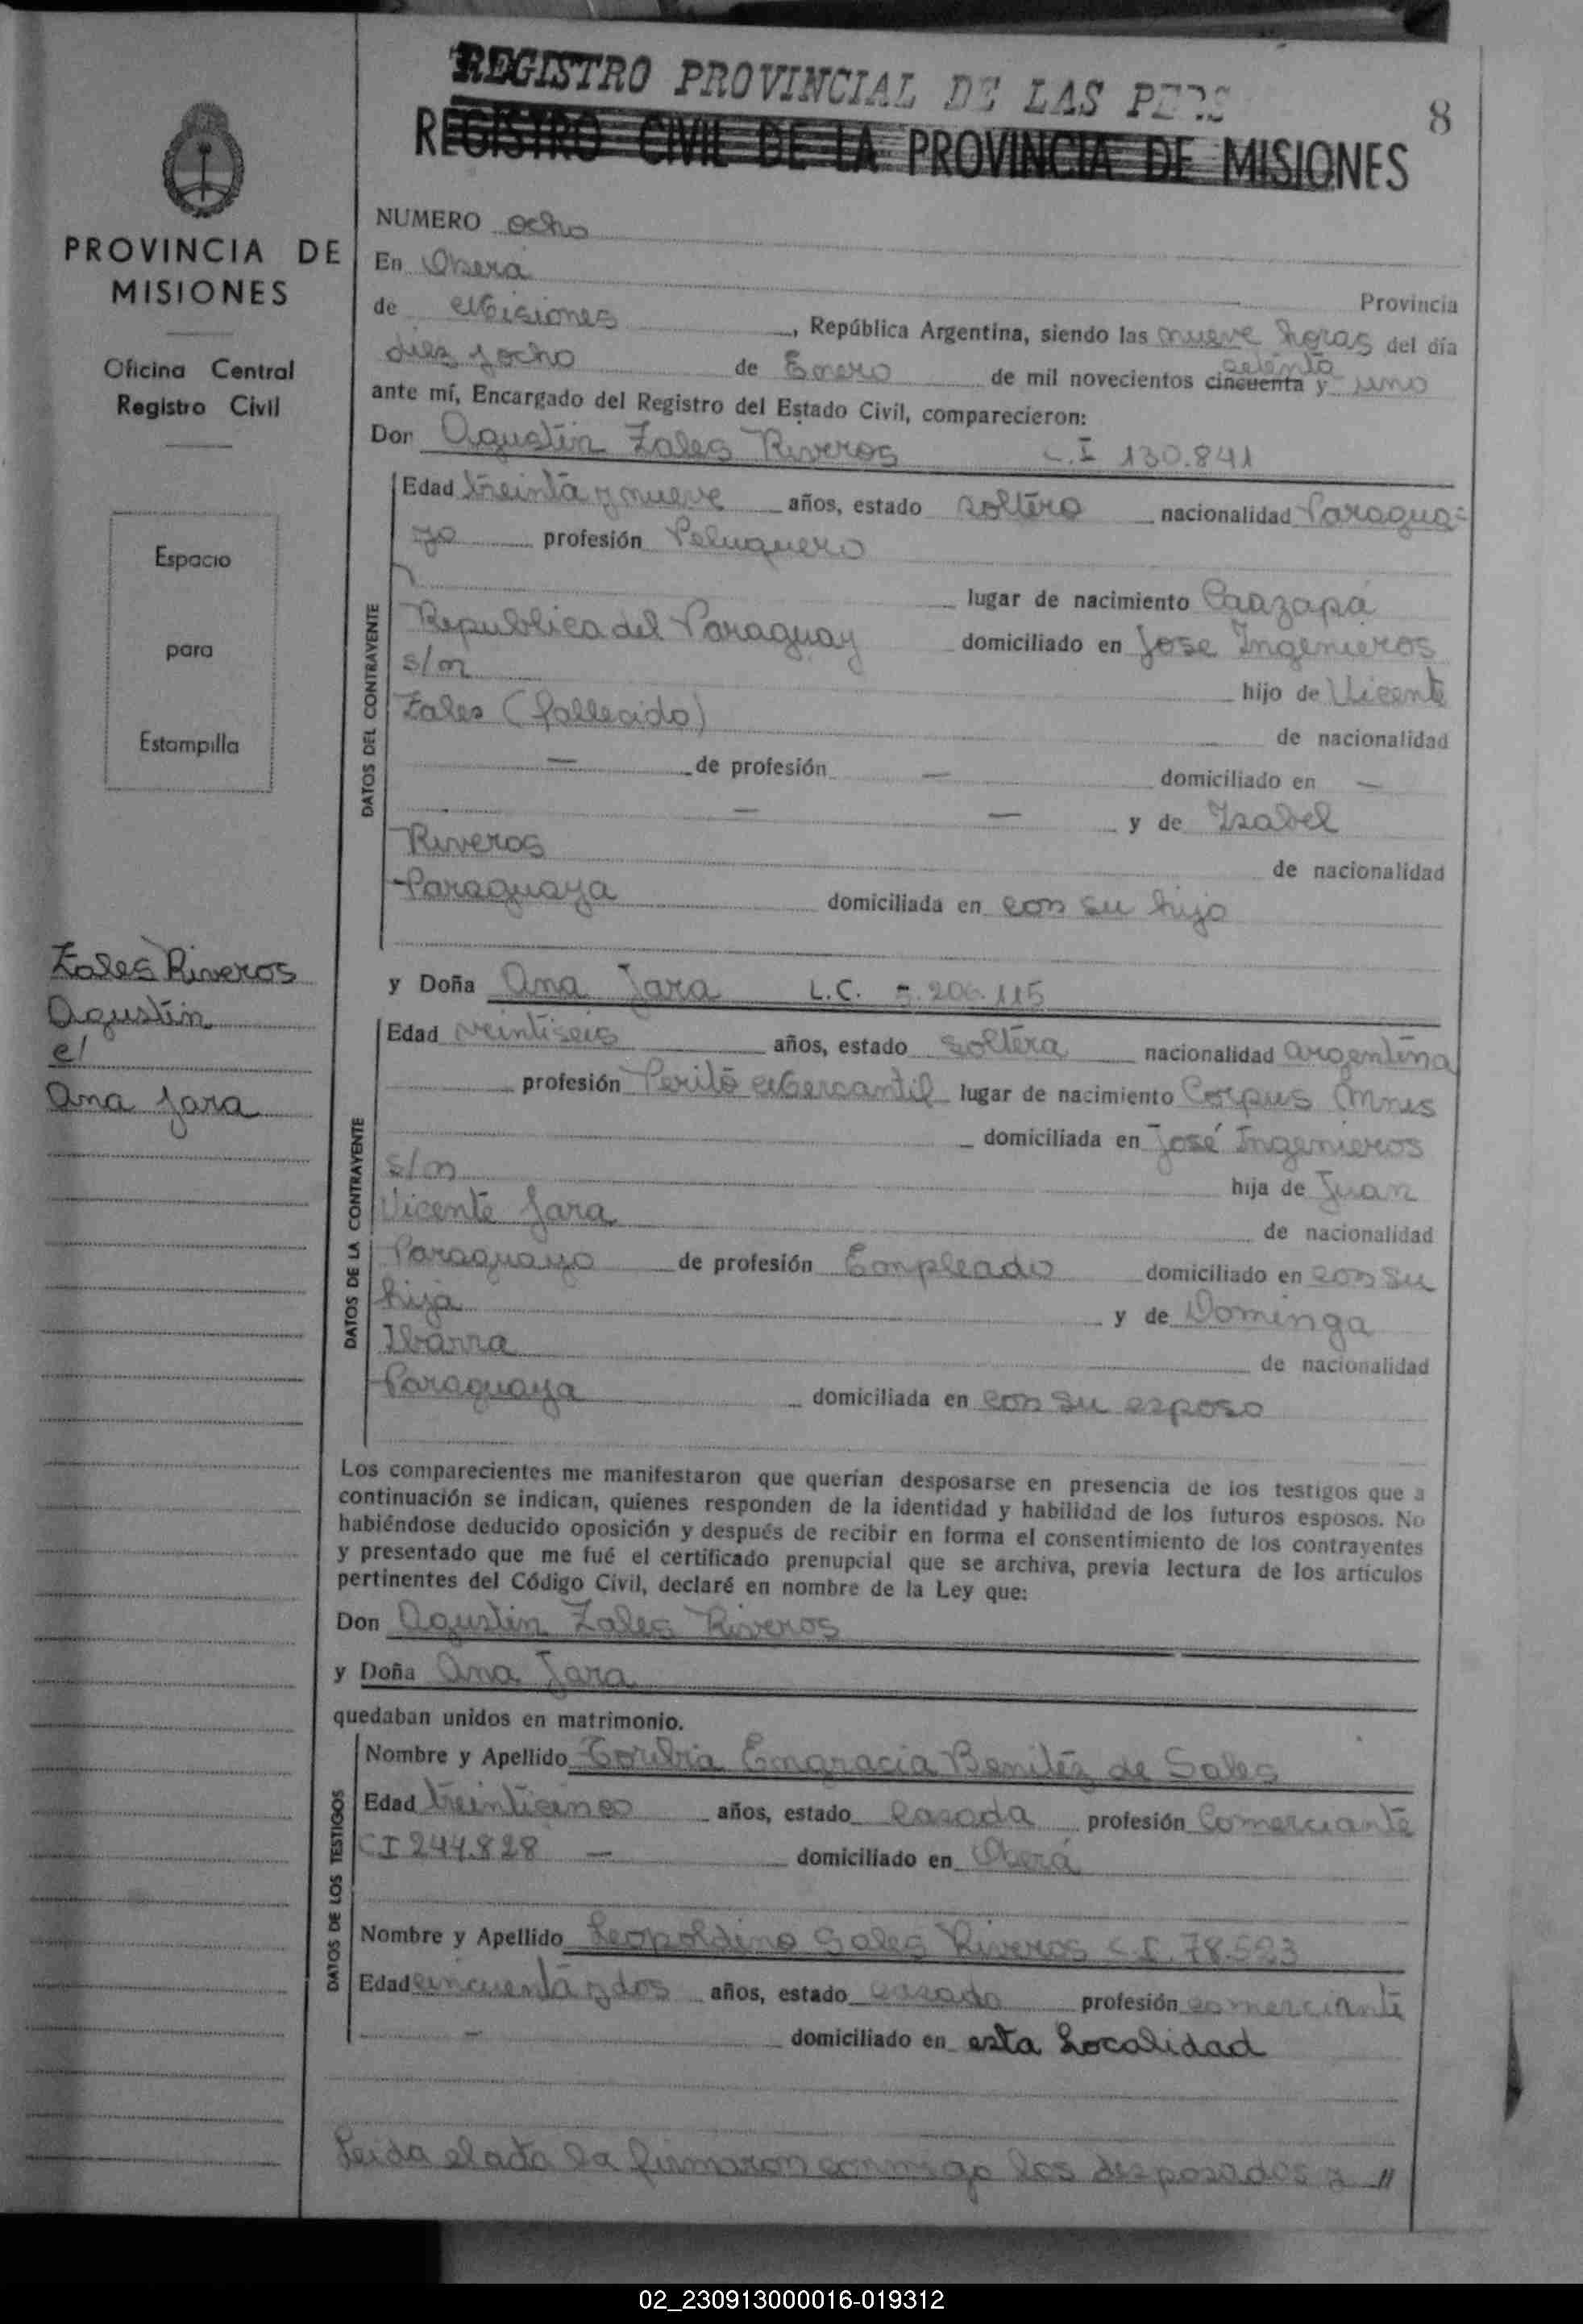 REGISTRO PROVINCIAL DE LAS PERS
8
REGISTRO CIVIL DE LA PROVINCIA DE MISIONES
PROVINCIA DE
MISIONES
Oficina Central
Registro Civil
Espacio
para
Estampilla
Zales Riveros
Agustin
c/
Ana Jara
NUMERO ocho
En Oberá Provincia
de Misiones, República Argentina, siendo las nueve horas del día
diez y ocho de Enero de mil novecientos cincuenta setenta y uno
ante mí, Encargado del Registro del Estado Civil, comparecieron:
Don Agustin Zales Riveros C.I 130.841
DATOS DEL CONTRAYENTE
Edad treinta y nueve años, estado soltero nacionalidad Paragua=
yo profesión Peluquero
lugar de nacimiento Caazapá
Republica del Paraguay domiciliado en Jose Ingenieros
s/n hijo de Vicente
Zales (fallecido) de nacionalidad
— de profesión — domiciliado en —
— — y de Isabel
Riveros de nacionalidad
Paraguaya domiciliada en con su hijo
y Doña Ana Jara L.C. 5.206.115
DATOS DE LA CONTRAYENTE
Edad veintiseis años, estado soltera nacionalidad argentina
profesión Perito Mercantil lugar de nacimiento Corpus Mnes
domiciliada en José Ingenieros
s/n hija de Juan
Vicente Jara de nacionalidad
Paraguayo de profesión Empleado domiciliado en con su
hija y de Dominga
Ibarra de nacionalidad
Paraguaya domiciliada en con su esposo
Los comparecientes me manifestaron que querían desposarse en presencia de los testigos que a
continuación se indican, quienes responden de la identidad y habilidad de los futuros esposos. No
habiéndose deducido oposición y después de recibir en forma el consentimiento de los contrayentes
y presentado que me fué el certificado prenupcial que se archiva, previa lectura de los artículos
pertinentes del Código Civil, declaré en nombre de la Ley que:
Don Agustin Zales Riveros
y Doña Ana Jara
quedaban unidos en matrimonio.
DATOS DE LOS TESTIGOS
Nombre y Apellido Toribia Engracia Benitez de Sales
Edad treinticinco años, estado casada profesión Comerciante
CI 244.828 — domiciliado en Oberá
Nombre y Apellido Leopoldino Sales Riveros C.I. 78.523
Edad cincuenta y dos años, estado casado profesión comerciante
— domiciliado en esta Localidad
Leida el acta la firmaron conmigo los desposados y //
02_230913000016-019312